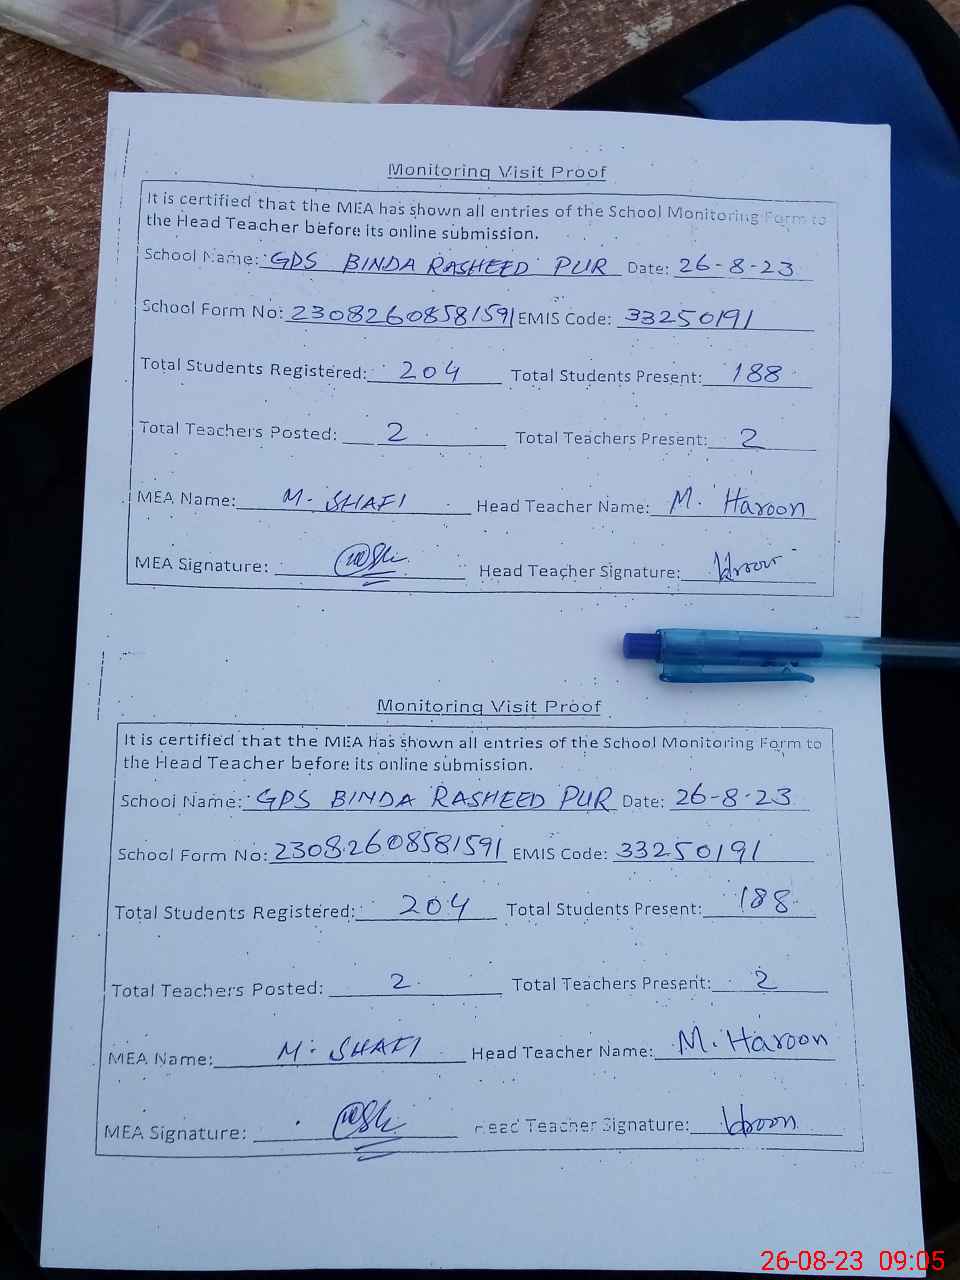 Monitoring Visit Proof
It is certified that the MEA has shown all entries of the School Monitoring Form to
the Head Teacher before its online submission.
School Name: GPS BINDA RASHEED PUR Date: 26-8-23
School Form No: 23082608581591 EMIS Code: 33250191
Total Students Registered: 204 Total Students Present: 188
Total Teachers Posted: 2 Total Teachers Present: 2
MEA Name: M. SHAFI Head Teacher Name: M. Haroon
MEA Signature: Head Teacher Signature: Haroon
Monitoring Visit Proof
It is certified that the MEA has shown all entries of the School Monitoring Form to
the Head Teacher before its online submission.
School Name: GPS BINDA RASHEED PUR Date: 26-8-23
School Form No: 23082608581591 EMIS Code: 33250191
Total Students Registered: 204 Total Students Present: 188
Total Teachers Posted: 2 Total Teachers Present: 2
MEA Name: M. SHAFI Head Teacher Name: M. Haroon
MEA Signature: Head Teacher Signature: Haroon
26-08-23 09:05